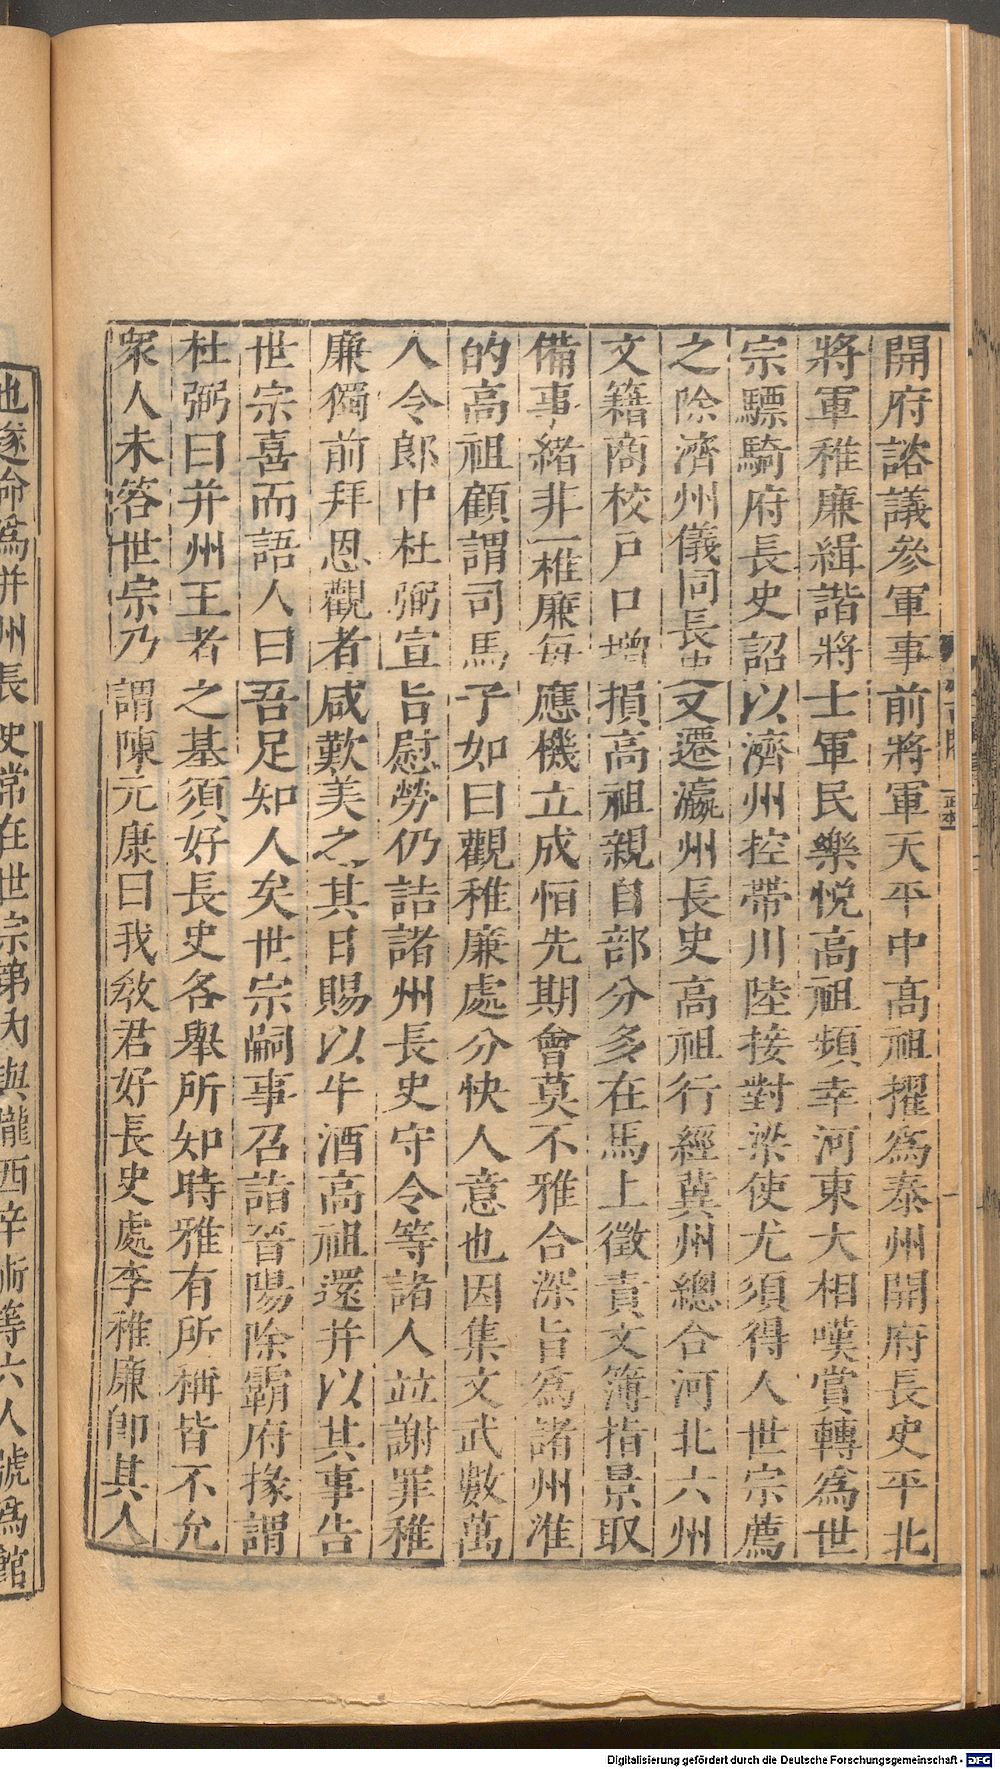 開府諮議參軍事前將軍天平中高祖擢為泰州開府長史平北
將軍稚廉緝諧將士軍民樂悅高祖頻幸河東大相嘆賞轉為世
宗驃騎府長史詔以濟州控帶川陸接對梁使尤須得人世宗薦
之除濟州儀同長史又遷瀛州長史高祖行經冀州總合河北六州
文籍商校戶口增損高祖親自部分多在馬上徵責文簿指景取
備事緒非一稚廉每應機立成恒先期會莫不雅合深旨為諸州准
的高祖顧謂司馬子如曰觀稚廉處分快人意也因集文武數萬
人令郎中杜弼宣旨慰勞仍詰諸州長史守令等諸人並謝罪稚
廉獨前拜恩觀者咸歎美之其日賜以牛酒高祖還并以其事告
世宗喜而語人曰吾足知人矣世宗嗣事召詣晉陽除霸府掾謂
杜弼曰并州王者之基須好長史各舉所知時雅有所稱皆不允
眾人未答世宗乃謂陳元康曰我教君好長史處李稚廉即其人
也遂命為并州長史常在世宗第內與隴西辛術等六人號為館
Digitalisierung gefördert durch die Deutsche Forschungsgemeinschaft - DFG